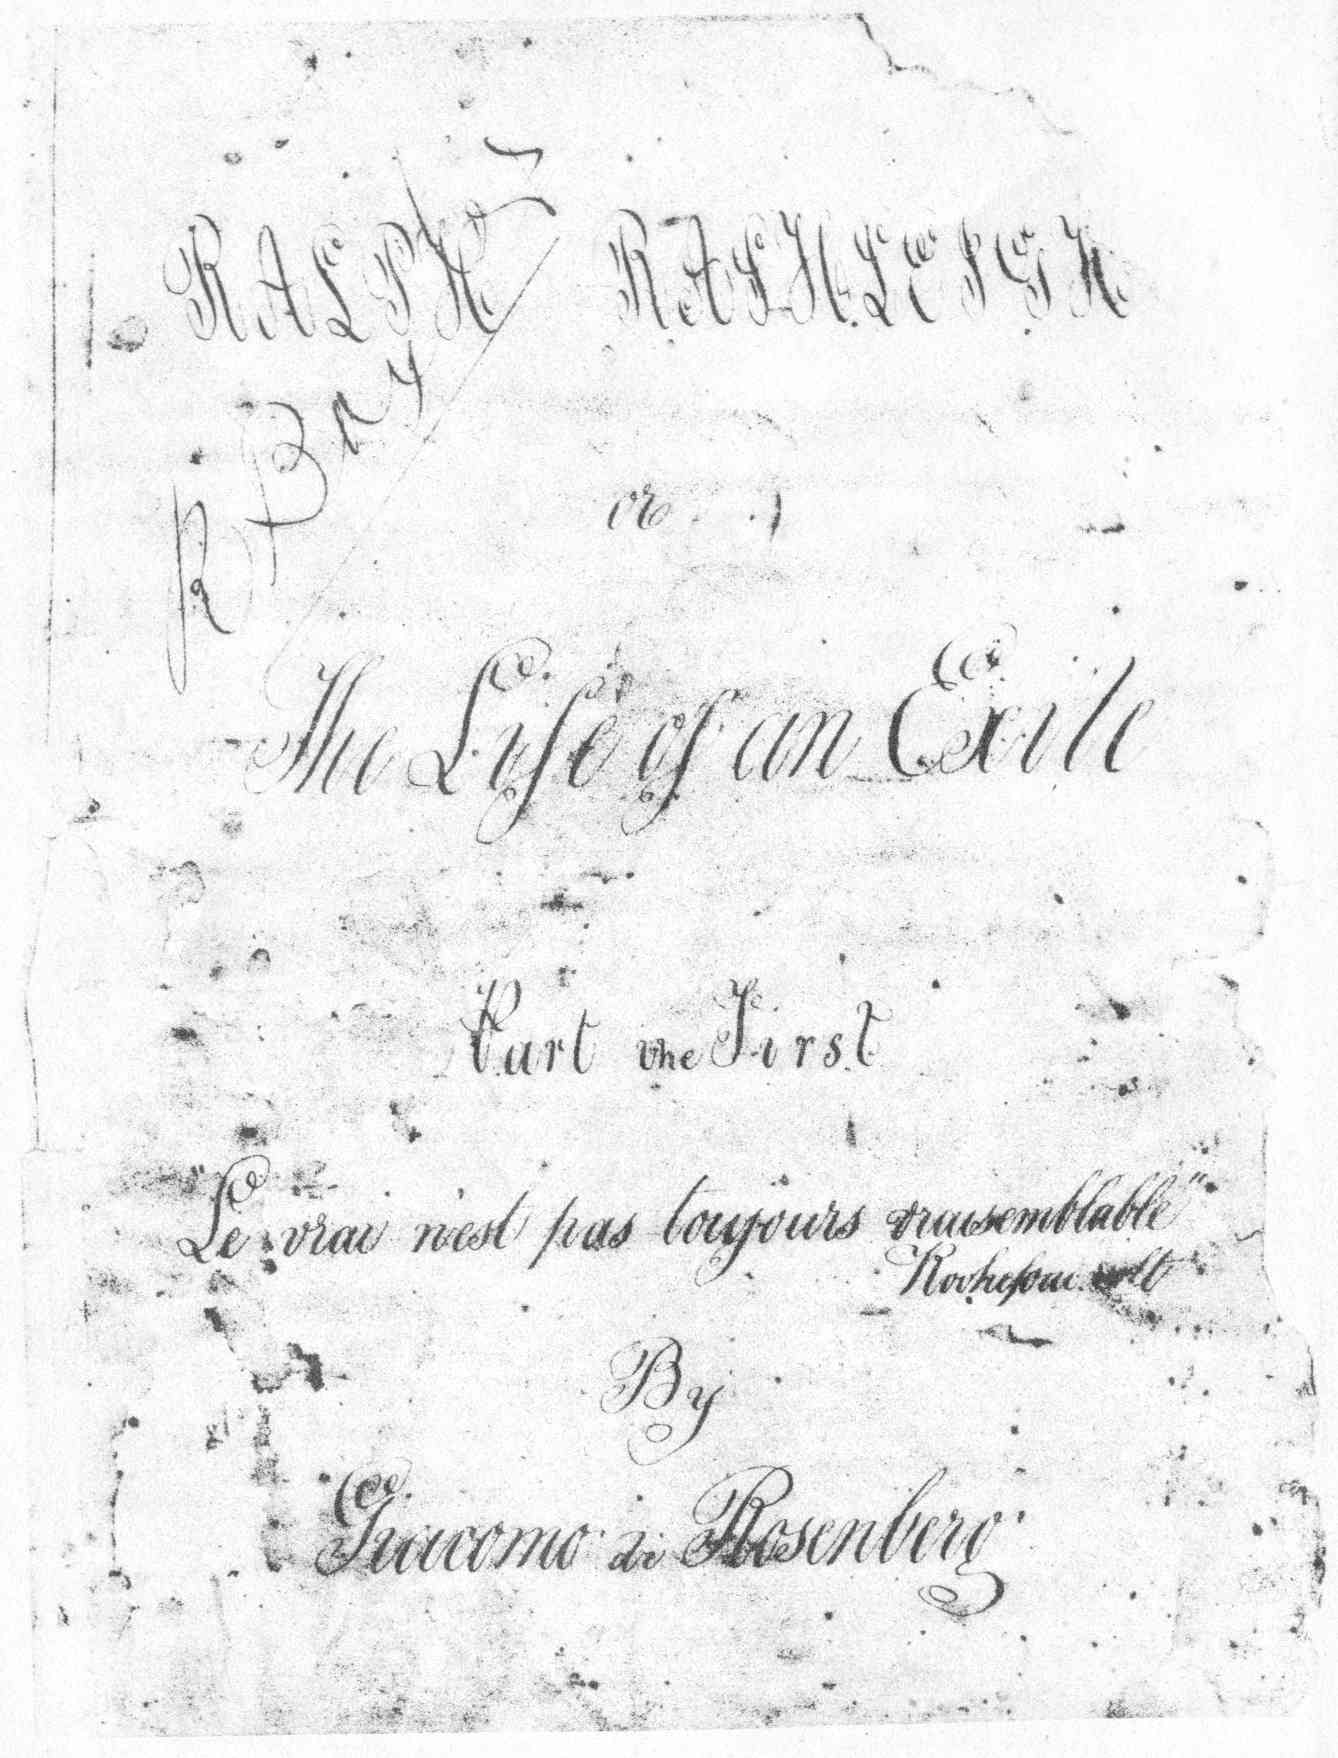 RALPH RASHLEIGH
R Bay
or
The Life of an Exile
Part the First
"Le vrai n'est pas toujours vraisemblable"
Rochefoucault
By
Giacomo di Rosenberg